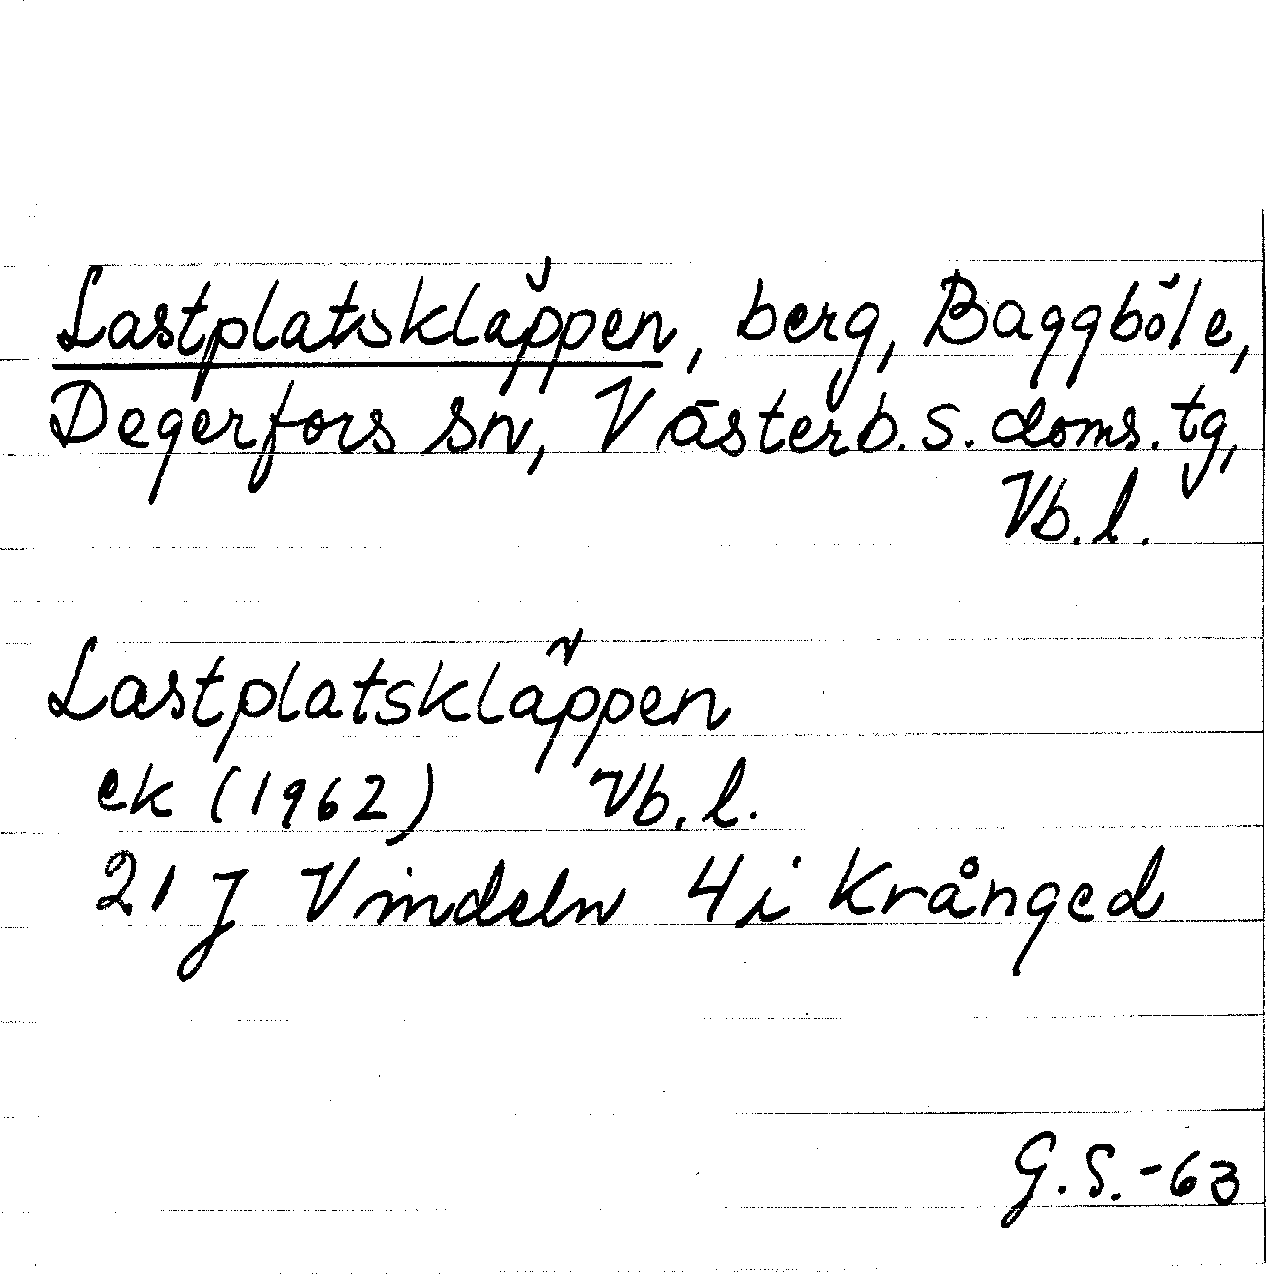 Lastplatskläppen, berg, Baggböle,
Degerfors sn, Västerb. s. doms. tg,
Vb. l.
Lastplatskläppen
ek (1962) Vb. l.
21 J Vindeln 4 i Krånged
G.S.-63